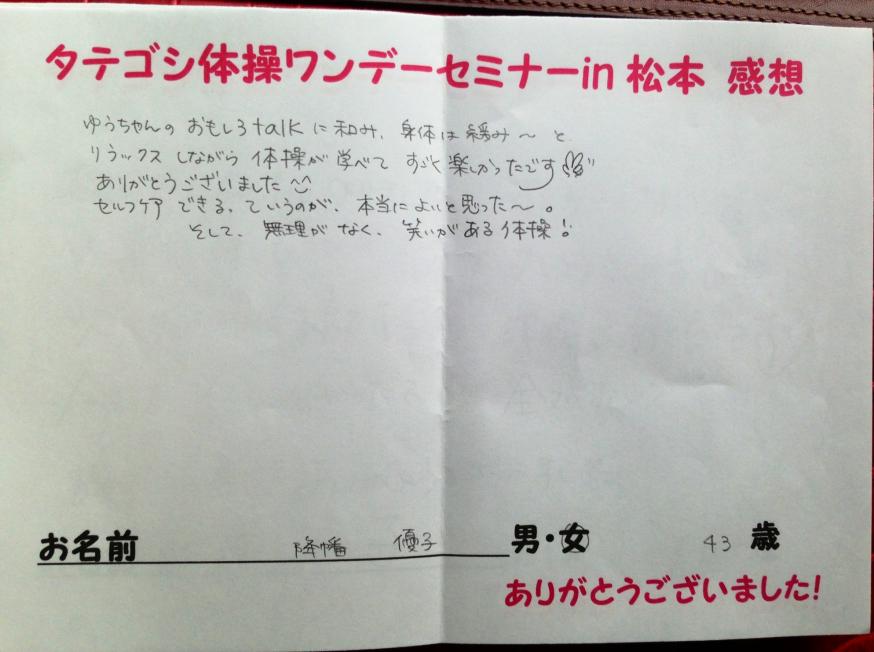 タテゴシ体操ワンデーセミナーin 松本 感想
ゆうちゃんの おもしろtalkに和み、身体は緩み〜と
リラックスしながら 体操が学べて すごく楽しかったです
ありがとうございました
セルフケアできる。ていうのが、本当によいと思った〜。
そして、無理がなく、笑いがある体操!
お名前 降幡 優子 男・女 43 歳
ありがとうございました!